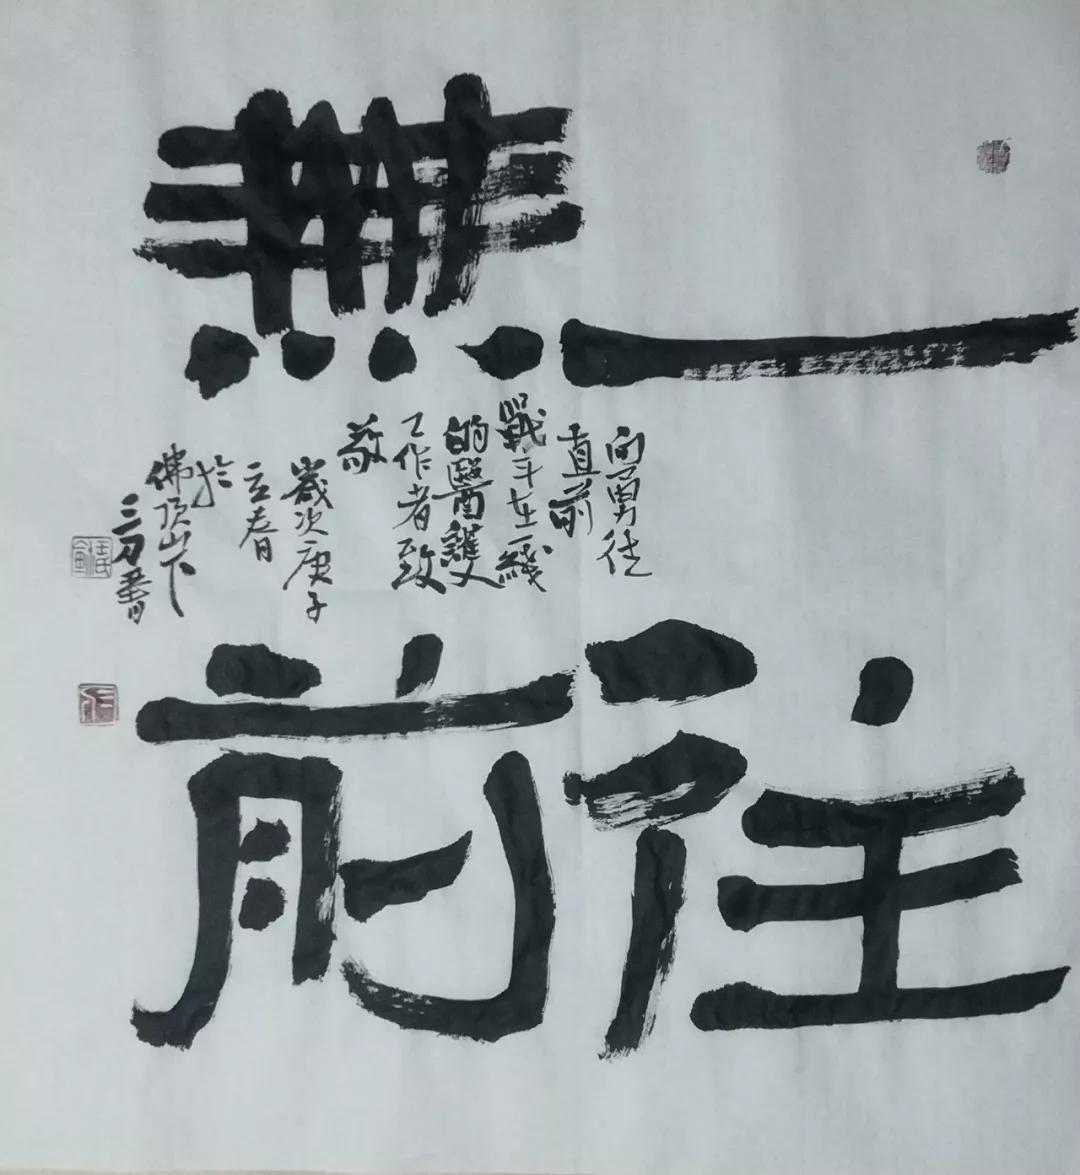 一往
無前
向勇往
直前
戰斗在一綫
的醫護
工作者致
敬
歲次庚子
立春
於
佛顶山下
三刀書